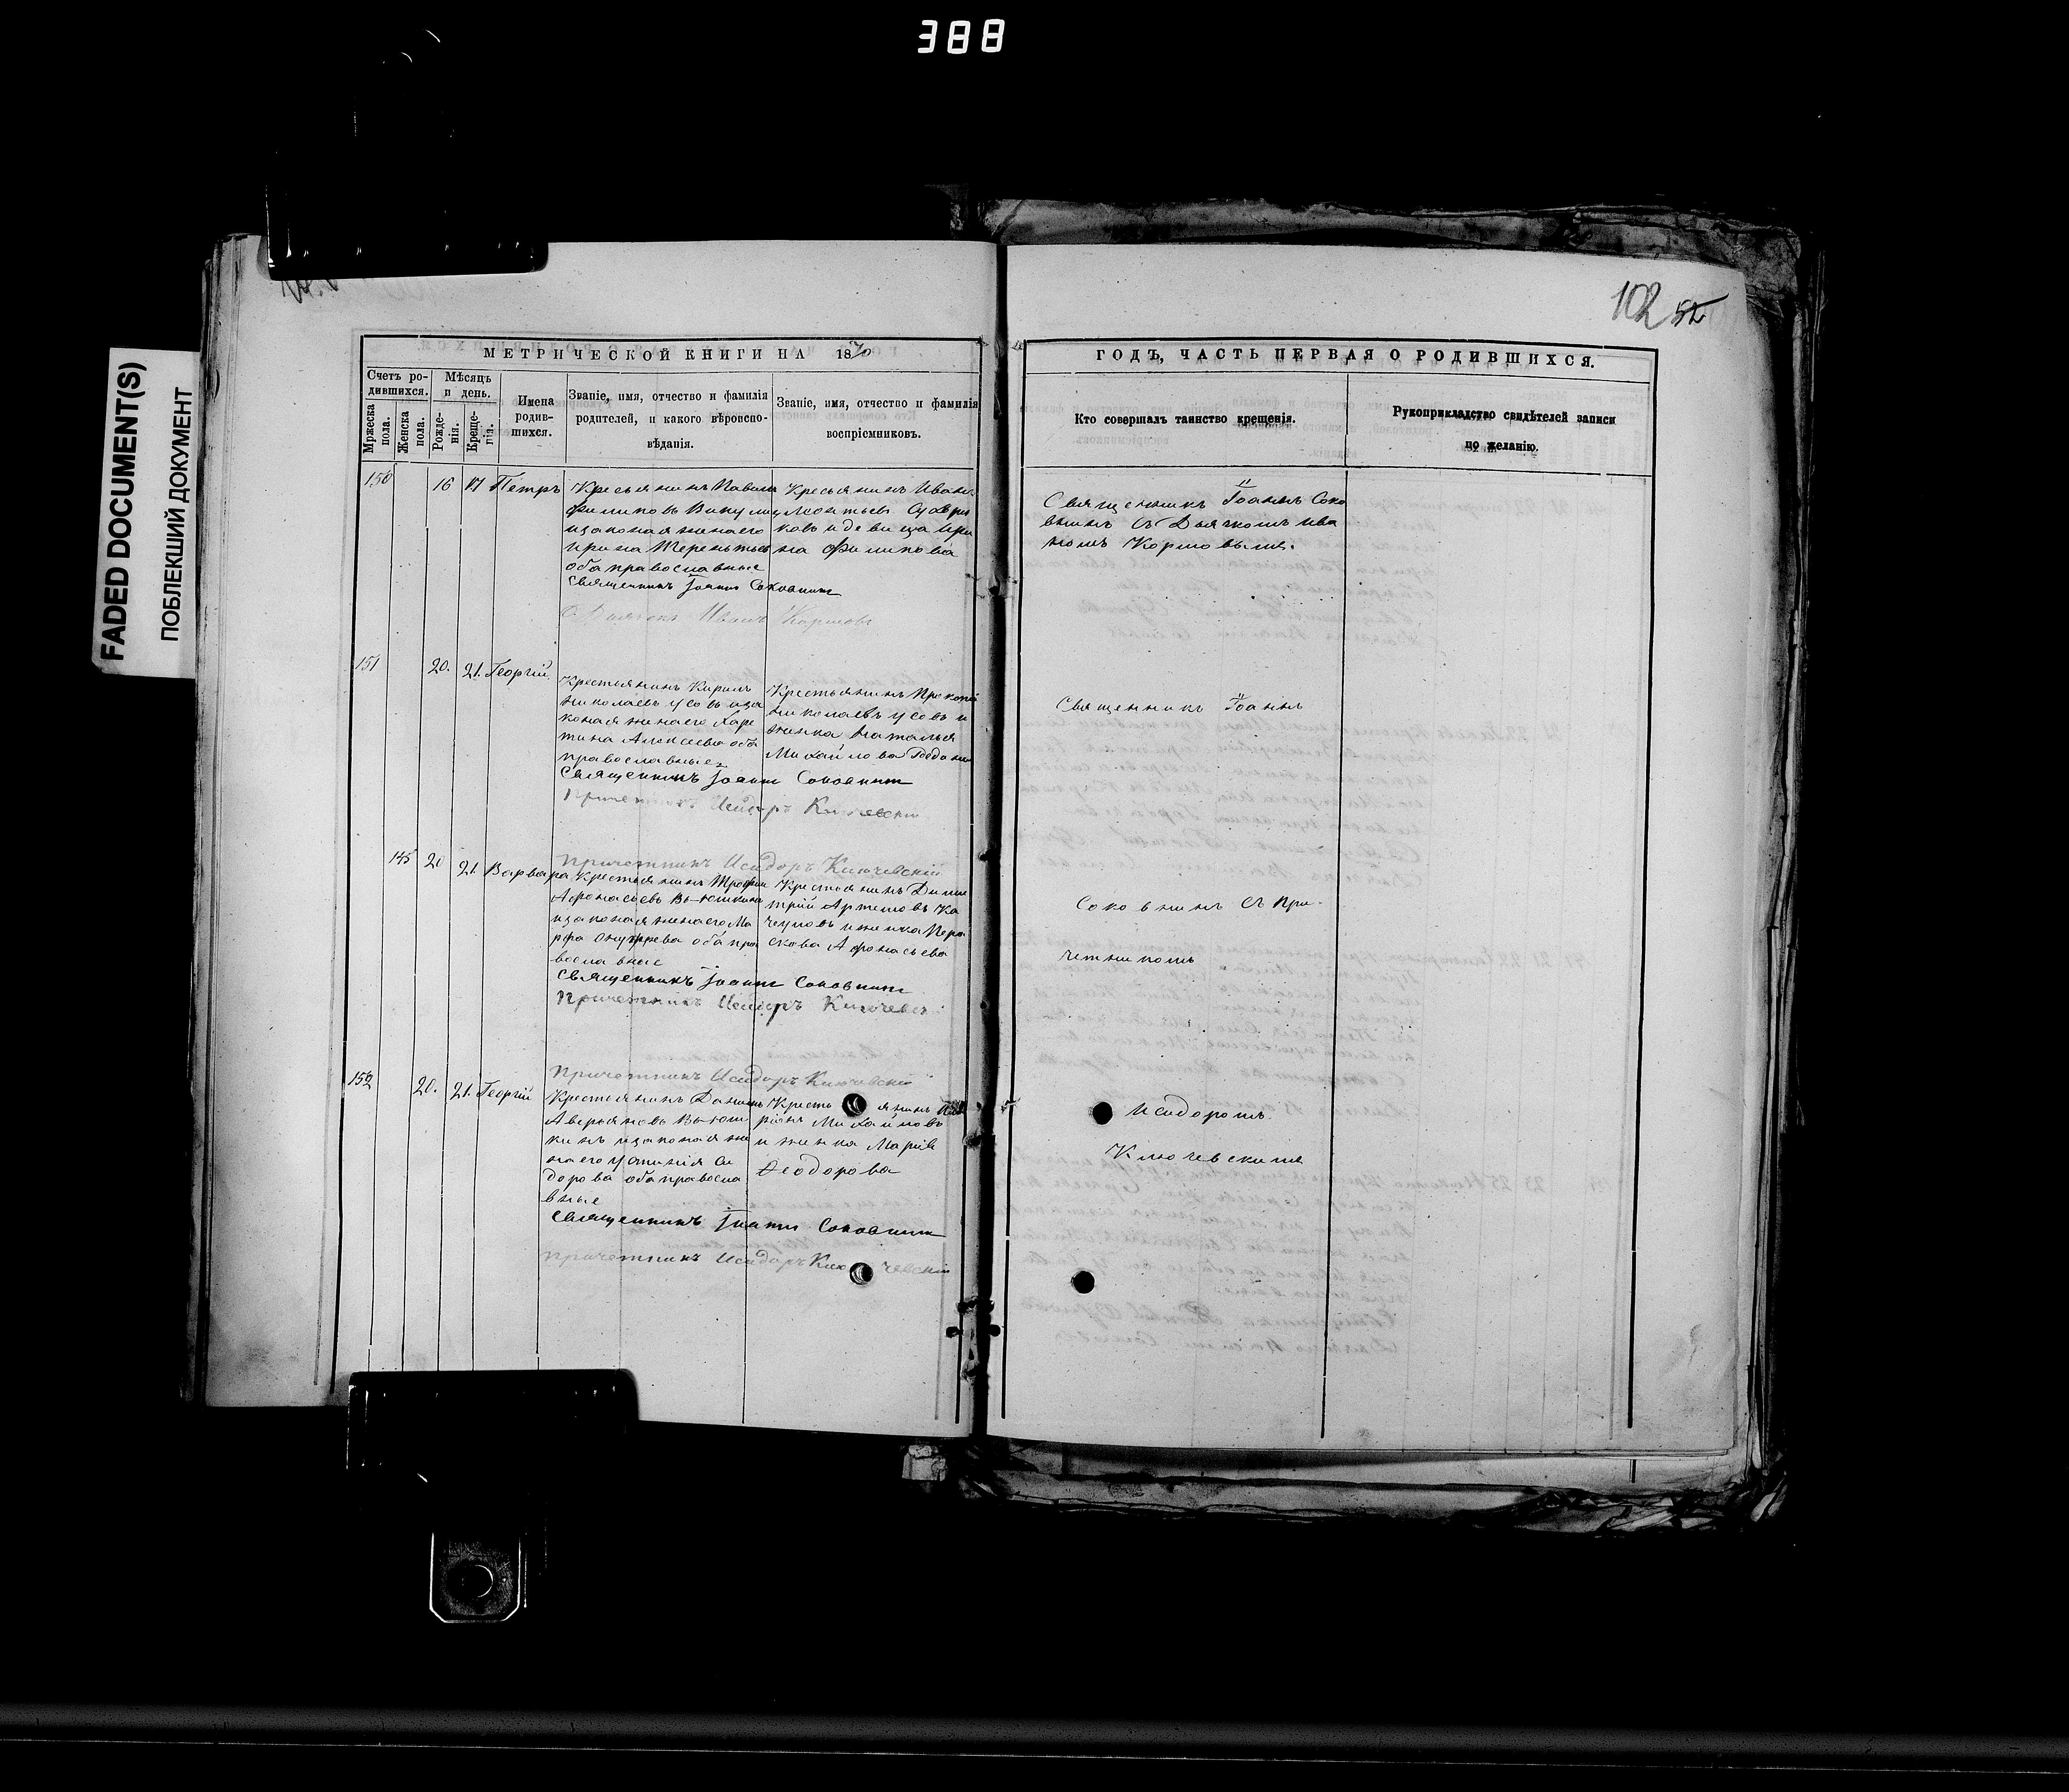 388
FADED DOCUMENT(S)
ПОБЛЕКШИЙ ДОКУМЕНТ
102 52
МЕТРИЧЕСКОЙ КНИГИ НА 1870
ГОДЪ, ЧАСТЬ ПЕРВАЯ О РОДИВШИХСЯ.
Счетъ ро-
дившихся.
Мржеска
пола.
Женска
пола.
Мѣсяцъ
и день.
Рожде-
нія.
Креще-
нія.
Имена
родив-
шихся.
Званіе, имя, отчество и фамилія
родителей, и какого вѣроиспо-
вѣданія.
Званіе, имя, отчество и фамилія
воспріемниковъ.
Кто совершалъ таинство крещенія.
Рукоприкладство свидѣтелей записи
по желанію.
150
16 17 Петръ
Филиповъ
изаконая женаего
Ирина Терентьева
оба православные
Священникъ Іоаннъ Соковнинъ
Дьячекъ Иванъ Кормовъ
Иванъ
Леонтьевъ
ковъ и девица Ири
на Филипова
Священникъ Іоаннъ Соко
внинъ съ Дьячкомъ Ива
номъ Кормовымъ.
151
20. 21. Георгій
Крестьянинъ Кирилъ
Николаевъ Усовъ иза
коная женаего Харе
тина Алексеева оба
православные
Священникъ Іоаннъ Соковнинъ
Причетникъ Исидоръ Ключевскій
Крестьянинъ Прокопій
Николаевъ Усовъ и
женка Наталья
Михайлова
Священникъ Іоаннъ
145 20 21. Варвара
Причетникъ Исидоръ Ключевскій
Крестьянинъ Трофим
Афонасьевъ Вьюшкинъ
изаконая женаего Ма
рфа Онуфрева оба пра
вославные
Священникъ Іоаннъ Соковнинъ
Причетникъ Исидоръ Ключевск
Крестьянинъ Дими
трій Артемовъ Ка
чуровъ и женка Пера
скова Афонасьева
Соковнинъ съ При-
четникомъ
152
20. 21. Георгій
Причетникъ Исидоръ Ключевскій
Крестьянинъ Данилъ
Аверьяновъ Вьюш
кинъ изаконая же
наего Устинія Си
дорова оба правосла
вные
Священникъ Іоаннъ Соковнинъ
Причетникъ Исидоръ Ключевскій
Крестьянинъ
Михайловъ
и женка Марія
Феодорова
Исидоромъ
Ключевскимъ